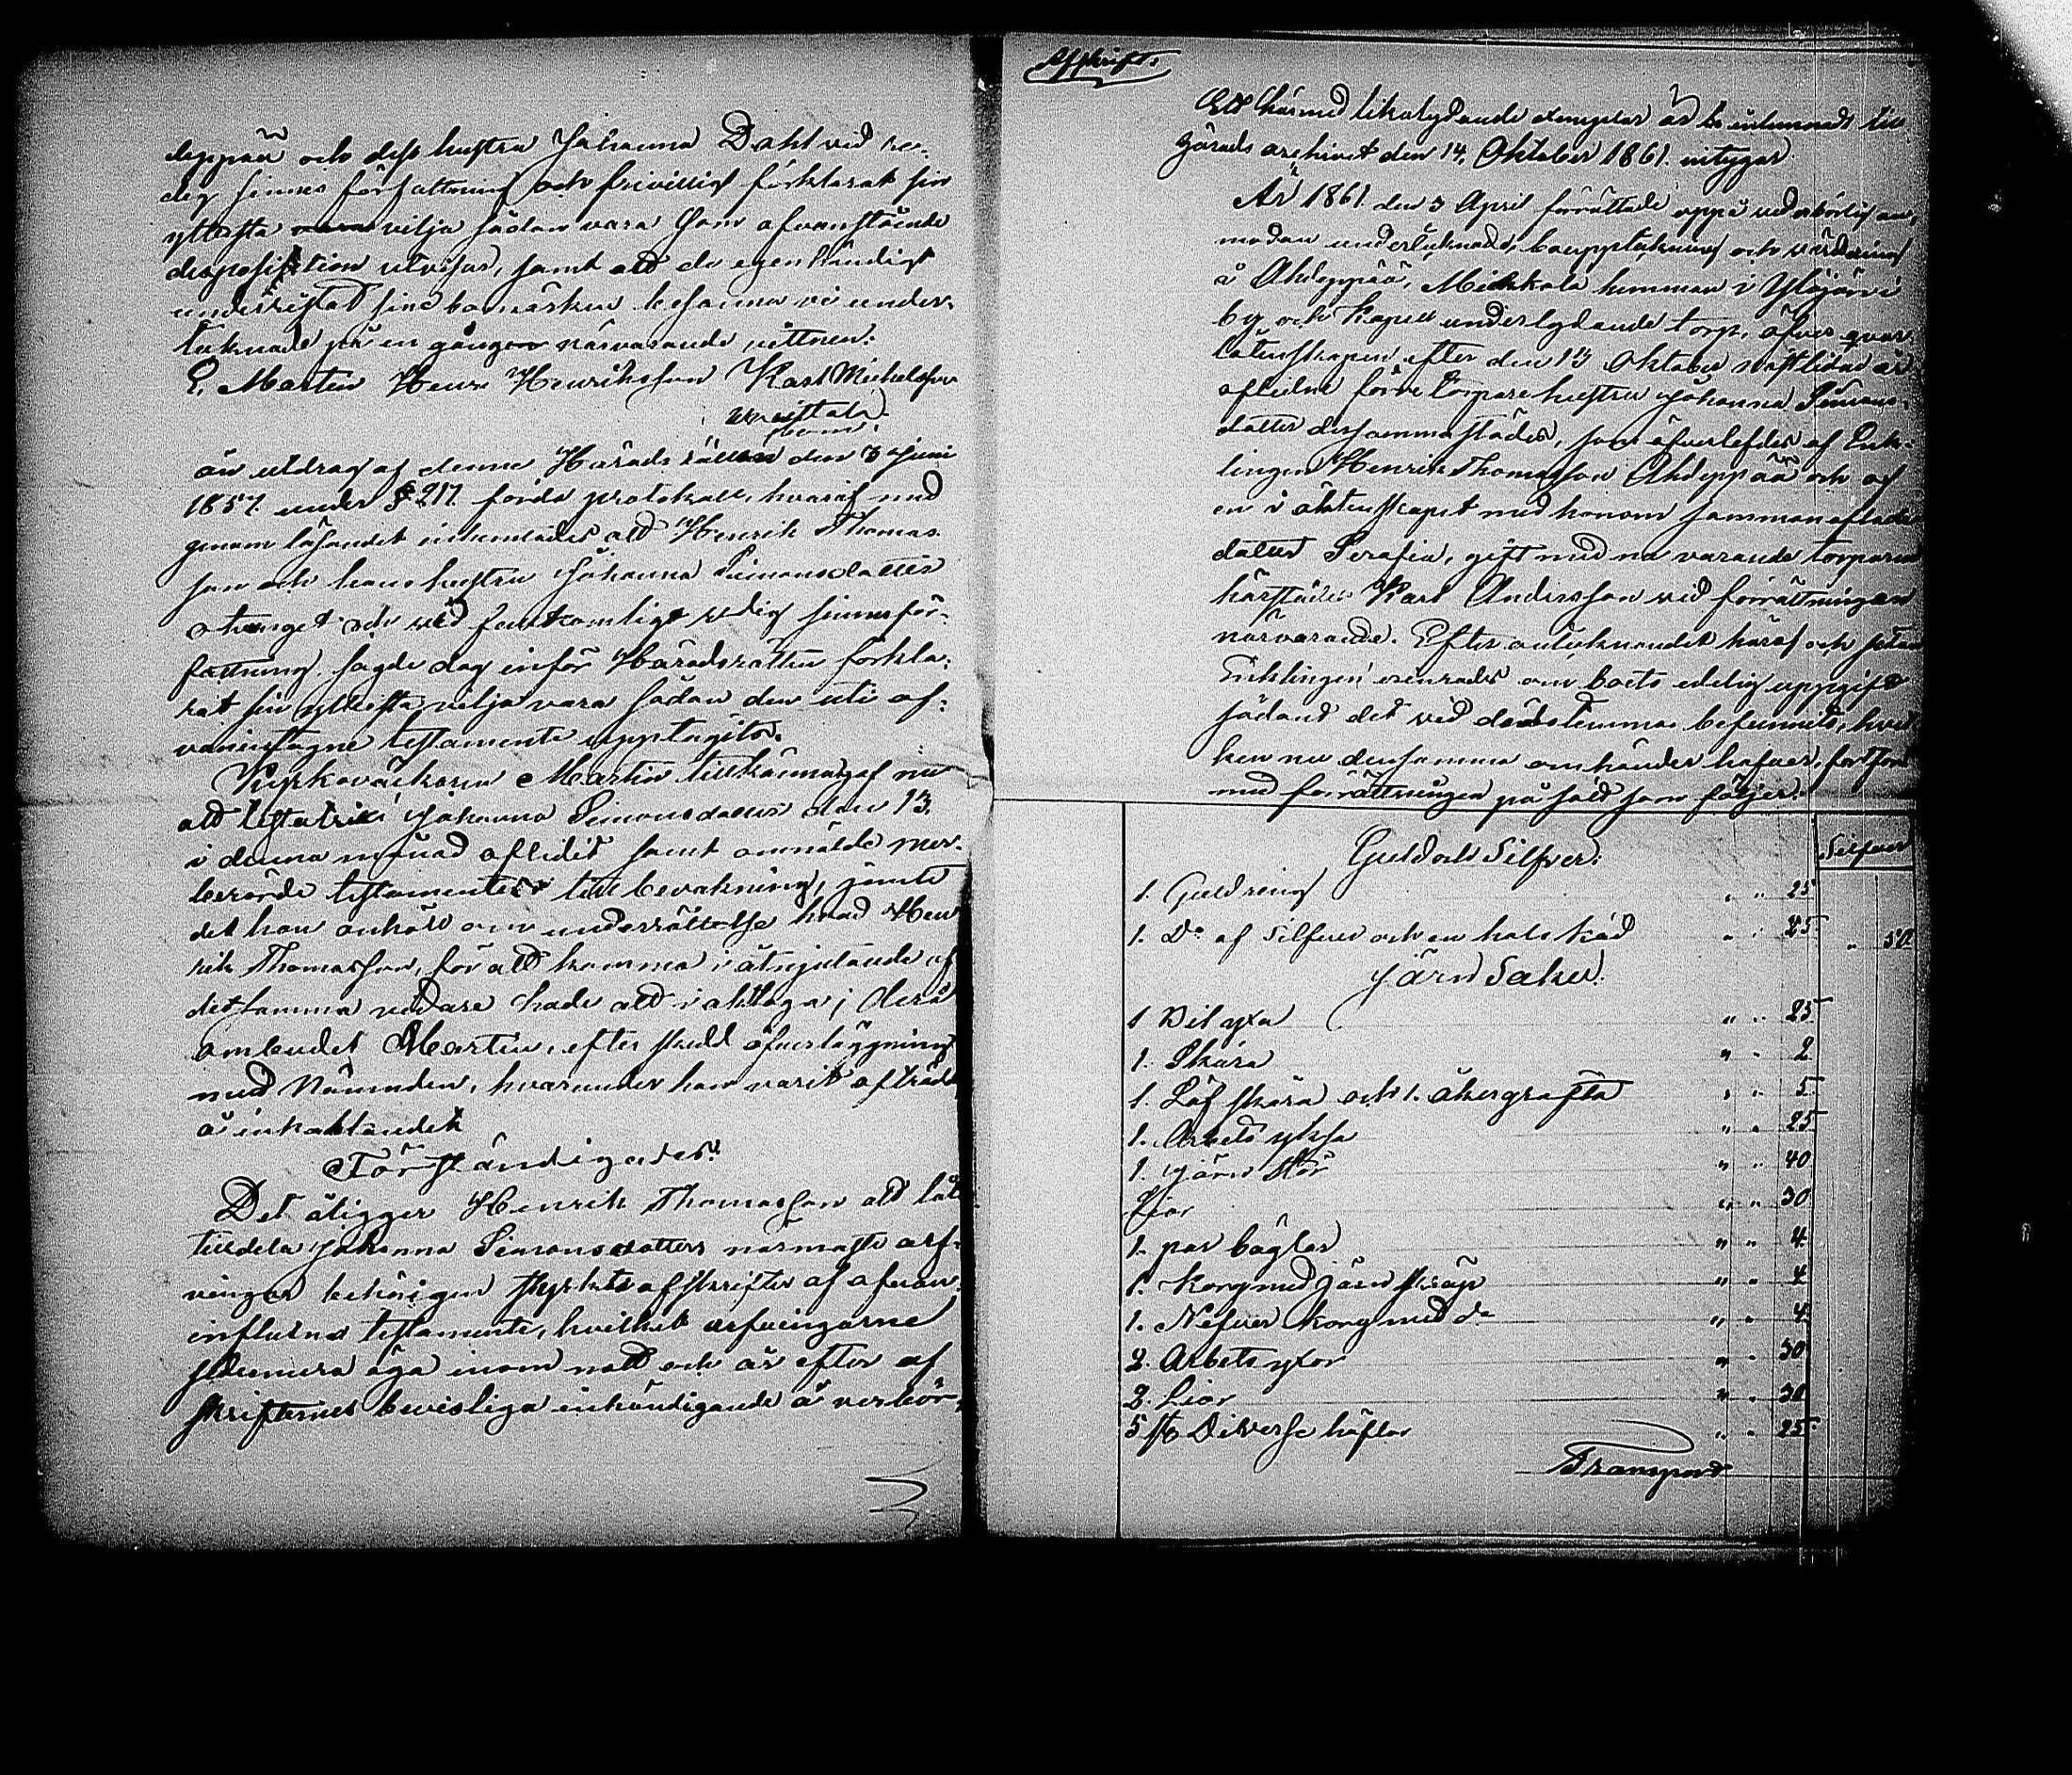 deppää och dess hustru Johanna Dahl vid re-
dig sinnes författning och frivilligt förklarat sin
yttersta vilja sådan vara som ofvanstående
disposition utvisar, samt att de egenhändigt
underristat sine bomärken besanna vi under-
tecknade på en gång närvarande vittnen.
E. Martin Henr Henriksson Karl Michelsson
Mattala
än utdrag af denne Härads rätten den 3 Juni
1857 under § 217 förda protokoll, hvaraf med
genom läsandet inhemtades att Henrik Thomas-
son och hans hustru Johanna Simonsdotter
otvunget och vid fullkomligt redig sinnesför-
fattning sagde dag inför Häradsrätten förkla-
rat sin yttersta vilja vara sådan den uti of-
vanintagne testamente upptagits.
Kyrkoväktaren Martin tillkännagaf nu
att testatrix Johanna Simonsdotter den 13.
i denna månad aflidit samt anmälde mer-
berörde testamente till bevakning, jämte
det han anhöll om underrättelse hvad Hen-
rik Thomasson, för att komma i åtnjutande af
detsamma vidare hade att i akttaga; derå
ombudet Martin, efter skedd öfverläggning
med Nämnden, hvarunder han varit afträdd
å inkallandet
Förständigades:
Det åligger Henrik Thomasson att låta
tilldela Johanna Simonsdotters närmaste arf-
vingar behörigen styrkte afskrifter af ofvan
influtna testamente, hvilket arfvingarne
sedermera äga inom natt och år efter af
skrifternes bevisliga inhändigande å verbör-
Afskrift.
Ett härmed likalydande exemplar är be inlemnadt till
Härads archivet den 14. Oktober 1861. intygar
År 1861 den 3 April förrättade uppå vederbörlig an-
modan undertecknade, bouppteckning och värdering
å Ahdeppää, Mickkola hemman i Ylöjärvi
by och Kapell underlydande torp, öfver qvar-
låtenskapen efter den 13 Oktober sistlidne år
aflidne förre torpare hustru Johanna Simons-
dotter dersammastädes, som öfverlefdes af Enk-
lingen Henrik Thomasson Ahdeppää och af
en i äktenskapet med honom sammanaflade
dotter Serafia, gift med nu varande torparen
härstädes Karl Andersson vid förrättningen
närvarande. Efter antecknandet häraf och sedan
Enklingen erinrades om boets edelig uppgift
sådant det vid dödstimman befunnits, hvil-
ken nu densamma omhänder hafver, fortfors
med förrättningen på sätt som följer:
Guld och Silfver: Silfver
1. Guldring " " 25
1. Do af Silfver och en hals käd " " 25 " 50
Järn Saker.
1 Bil yxa " " 25
1. Skära " " 2
1. Löf skära och 1. åkergräfta " " 5
1. Arbets yksa " " 25
1. järn stör " " 40
Lior " " 30
1. par bäglar " " 4
1. Korg med järn skräp " " 4
1. Näfver korg med do " " 4
2. Arbets yxor " " 30
2. Lior " " 30
5 st Diverse häflar " " 25
Transport